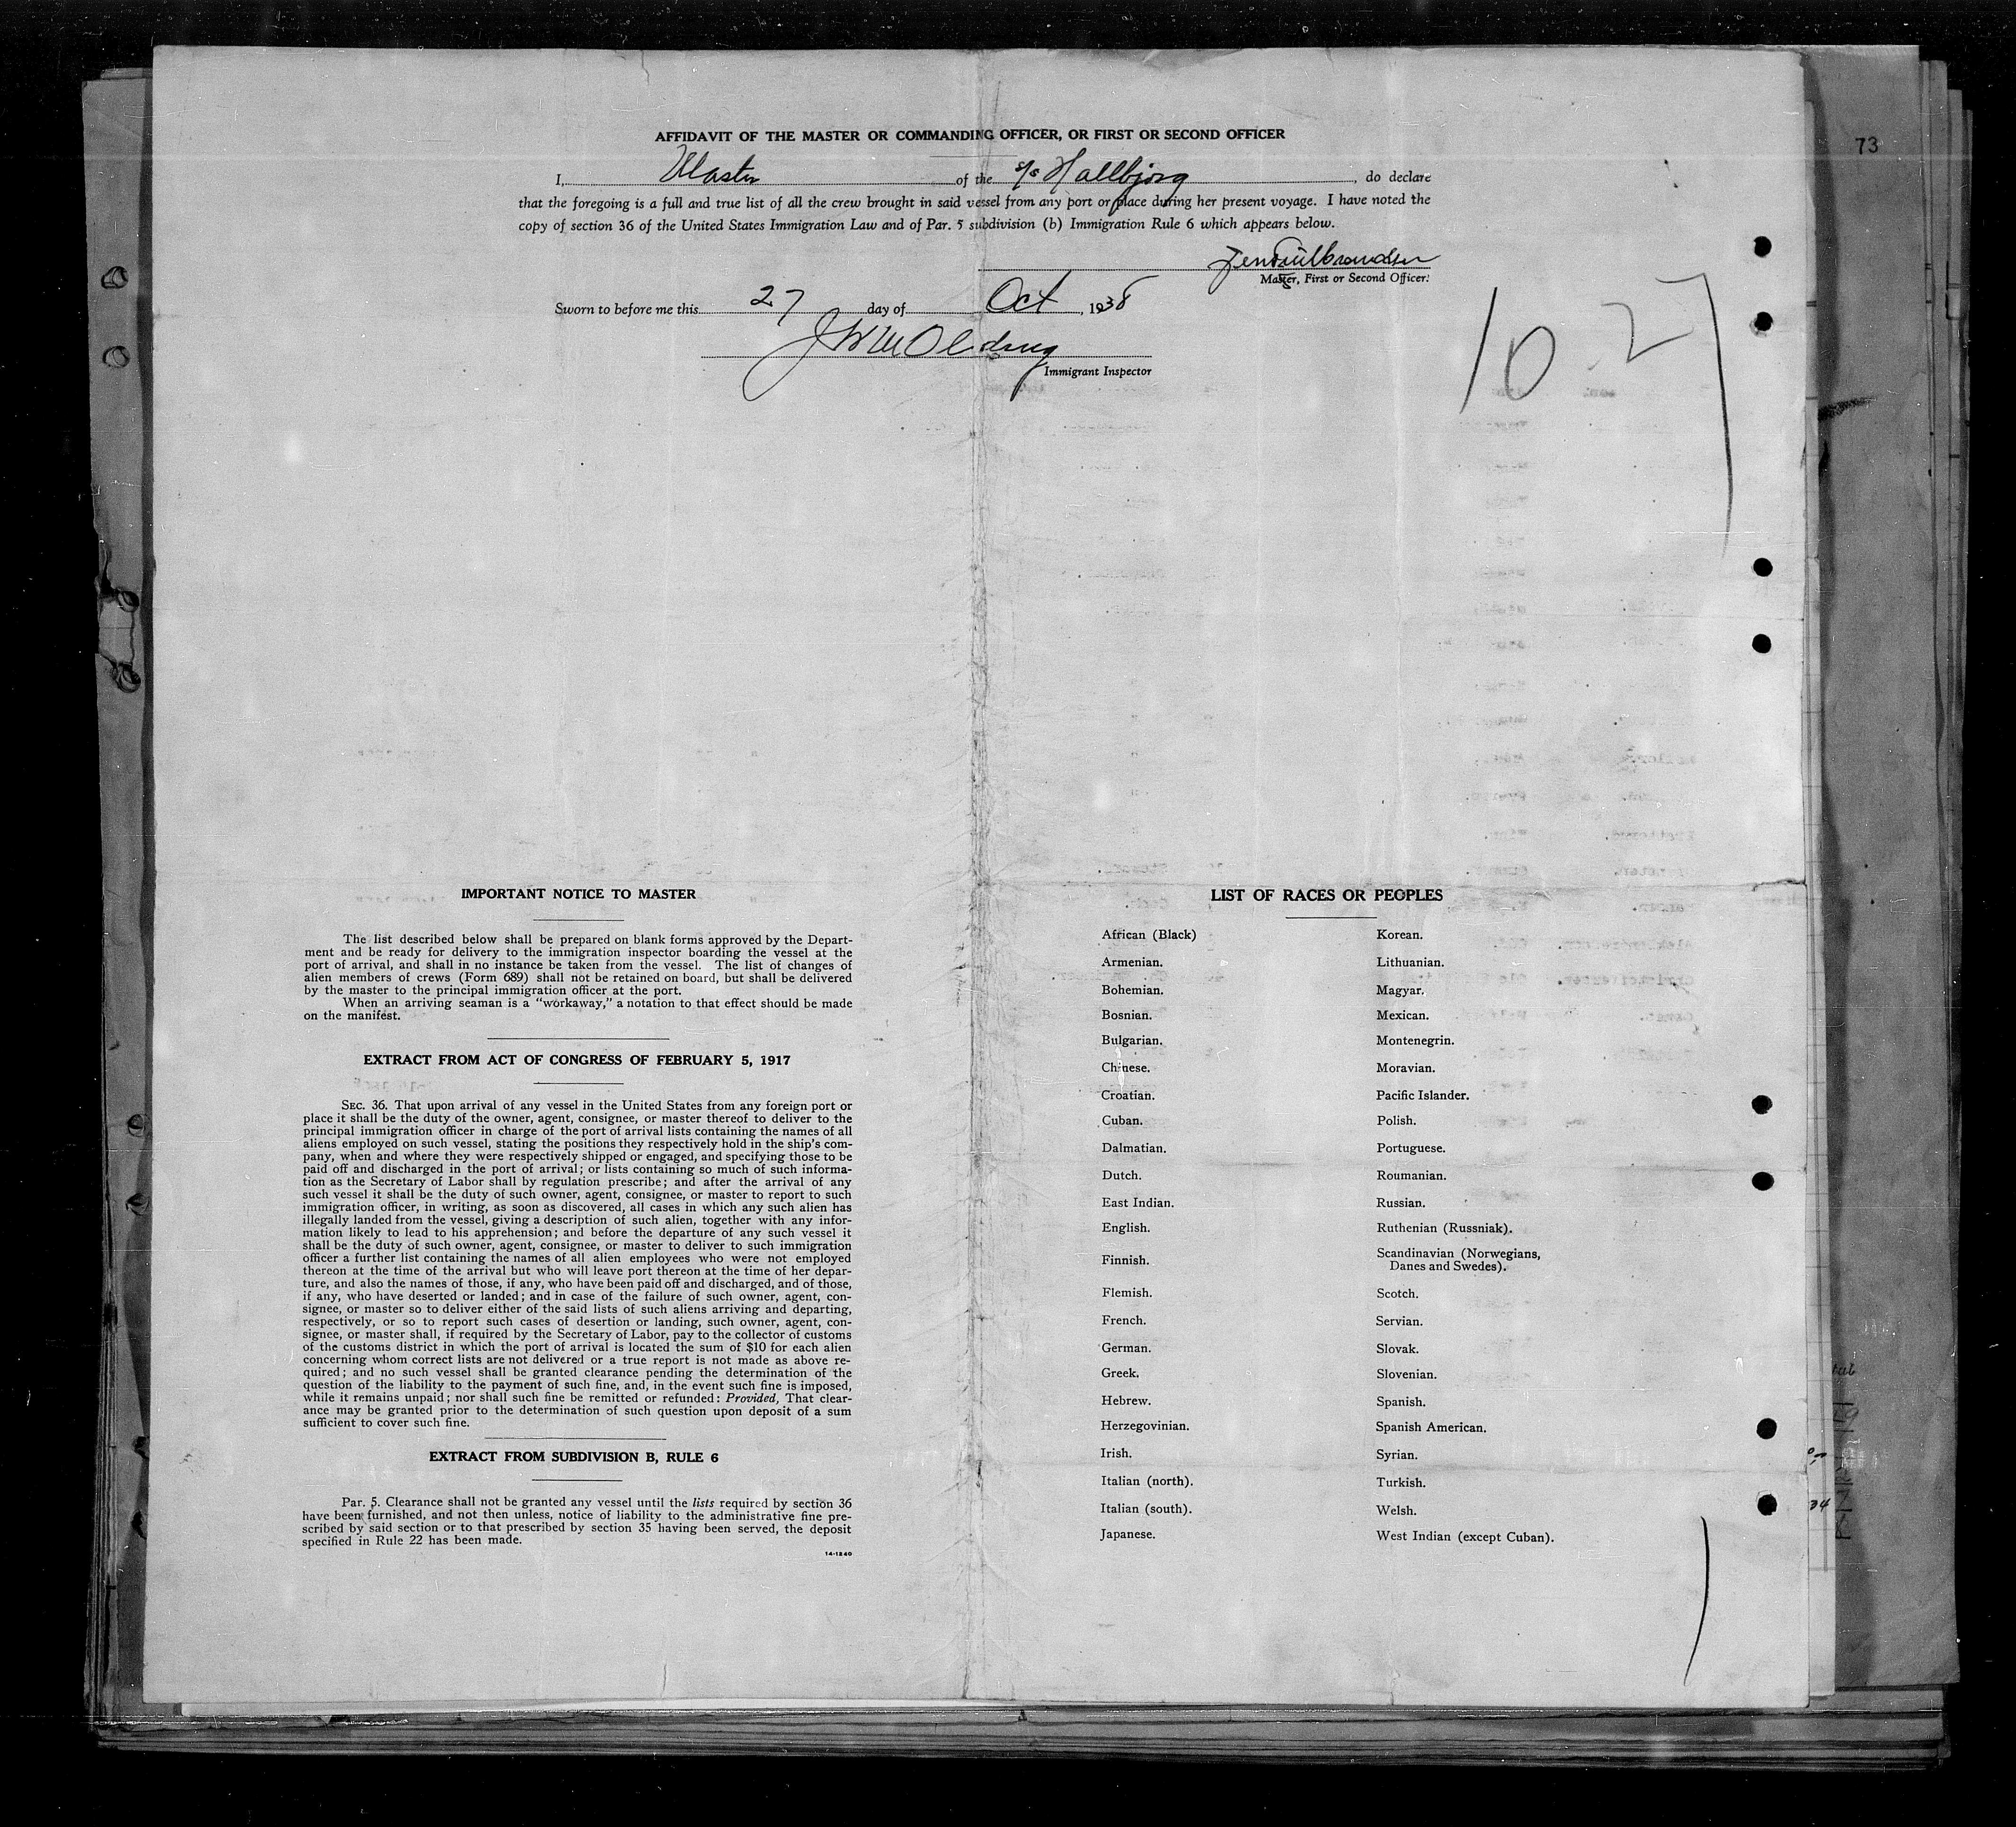 73
AFFIDAVIT OF THE MASTER OR COMMANDING OFFICER, OR FIRST OR SECOND OFFICER
I, Master of the s/s Hallbjorg, do declare
that the foregoing is a full and true list of all the crew brought in said vessel from any port or place during her present voyage. I have noted the
copy of section 36 of the United States Immigration Law and of Par. 5 subdivision (b) Immigration Rule 6 which appears below.
Master, First or Second Officer.
Sworn to before me this 27 day of Oct, 1938
Immigrant Inspector
10 27
IMPORTANT NOTICE TO MASTER
The list described below shall be prepared on blank forms approved by the Depart-
ment and be ready for delivery to the immigration inspector boarding the vessel at the
port of arrival, and shall in no instance be taken from the vessel. The list of changes of
alien members of crews (Form 689) shall not be retained on board, but shall be delivered
by the master to the principal immigration officer at the port.
When an arriving seaman is a "workaway," a notation to that effect should be made
on the manifest.
EXTRACT FROM ACT OF CONGRESS OF FEBRUARY 5, 1917
SEC. 36. That upon arrival of any vessel in the United States from any foreign port or
place it shall be the duty of the owner, agent, consignee, or master thereof to deliver to the
principal immigration officer in charge of the port of arrival lists containing the names of all
aliens employed on such vessel, stating the positions they respectively hold in the ship's com-
pany, when and where they were respectively shipped or engaged, and specifying those to be
paid off and discharged in the port of arrival; or lists containing so much of such informa-
tion as the Secretary of Labor shall by regulation prescribe; and after the arrival of any
such vessel it shall be the duty of such owner, agent, consignee, or master to report to such
immigration officer, in writing, as soon as discovered, all cases in which any such alien has
illegally landed from the vessel, giving a description of such alien, together with any infor-
mation likely to lead to his apprehension; and before the departure of any such vessel it
shall be the duty of such owner, agent, consignee, or master to deliver to such immigration
officer a further list containing the names of all alien employees who were not employed
thereon at the time of the arrival but who will leave port thereon at the time of her depar-
ture, and also the names of those, if any, who have been paid off and discharged, and of those,
if any, who have deserted or landed; and in case of the failure of such owner, agent, con-
signee, or master so to deliver either of the said lists of such aliens arriving and departing,
respectively, or so to report such cases of desertion or landing, such owner, agent, con-
signee, or master shall, if required by the Secretary of Labor, pay to the collector of customs
of the customs district in which the port of arrival is located the sum of $10 for each alien
concerning whom correct lists are not delivered or a true report is not made as above re-
quired; and no such vessel shall be granted clearance pending the determination of the
question of the liability to the payment of such fine, and, in the event such fine is imposed,
while it remains unpaid; nor shall such fine be remitted or refunded: Provided, That clear-
ance may be granted prior to the determination of such question upon deposit of a sum
sufficient to cover such fine.
EXTRACT FROM SUBDIVISION B, RULE 6
Par. 5. Clearance shall not be granted any vessel until the lists required by section 36
have been furnished, and not then unless, notice of liability to the administrative fine pre-
scribed by said section or to that prescribed by section 35 having been served, the deposit
specified in Rule 22 has been made.
14-1240
LIST OF RACES OR PEOPLES
African (Black)
Armenian.
Bohemian.
Bosnian.
Bulgarian.
Chinese.
Croatian.
Cuban.
Dalmatian.
Dutch.
East Indian.
English.
Finnish.
Flemish.
French.
German.
Greek.
Hebrew.
Herzegovinian.
Irish.
Italian (north).
Italian (south).
Japanese.
Korean.
Lithuanian.
Magyar.
Mexican.
Montenegrin.
Moravian.
Pacific Islander.
Polish.
Portuguese.
Roumanian.
Russian.
Ruthenian (Russniak).
Scandinavian (Norwegians,
Danes and Swedes).
Scotch.
Servian.
Slovak.
Slovenian.
Spanish.
Spanish American.
Syrian.
Turkish.
Welsh.
West Indian (except Cuban).